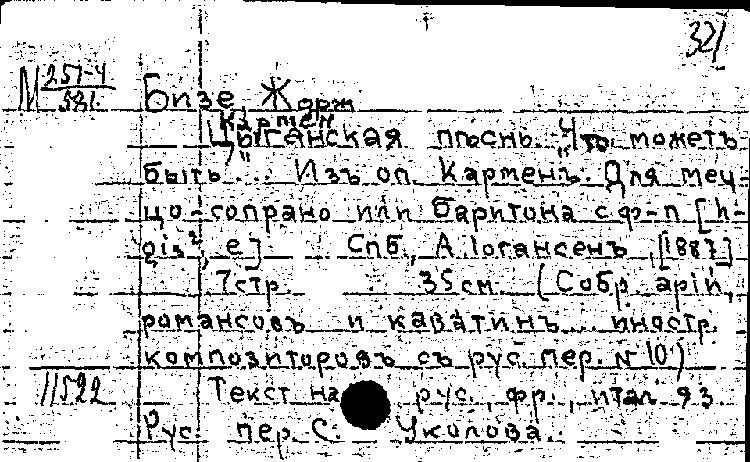 321
М 257-4
581
Бизе, Жорж
Кармен
Цыганская пѣснь. "Что можетъ
быть"... Изъ оп. Карменъ. Для мец-
цо-сопрано или баритона с ф-п [h-
gis², e] Спб., А. Іогансенъ, [1887]
7 стр. 35 см. (Собр. арій,
романсовъ и каватинъ... иностр.
композиторовъ съ рус. пер. N 10)
11522 Текст на рус., фр., итал. яз.
Рус. пер. С. Уколова.